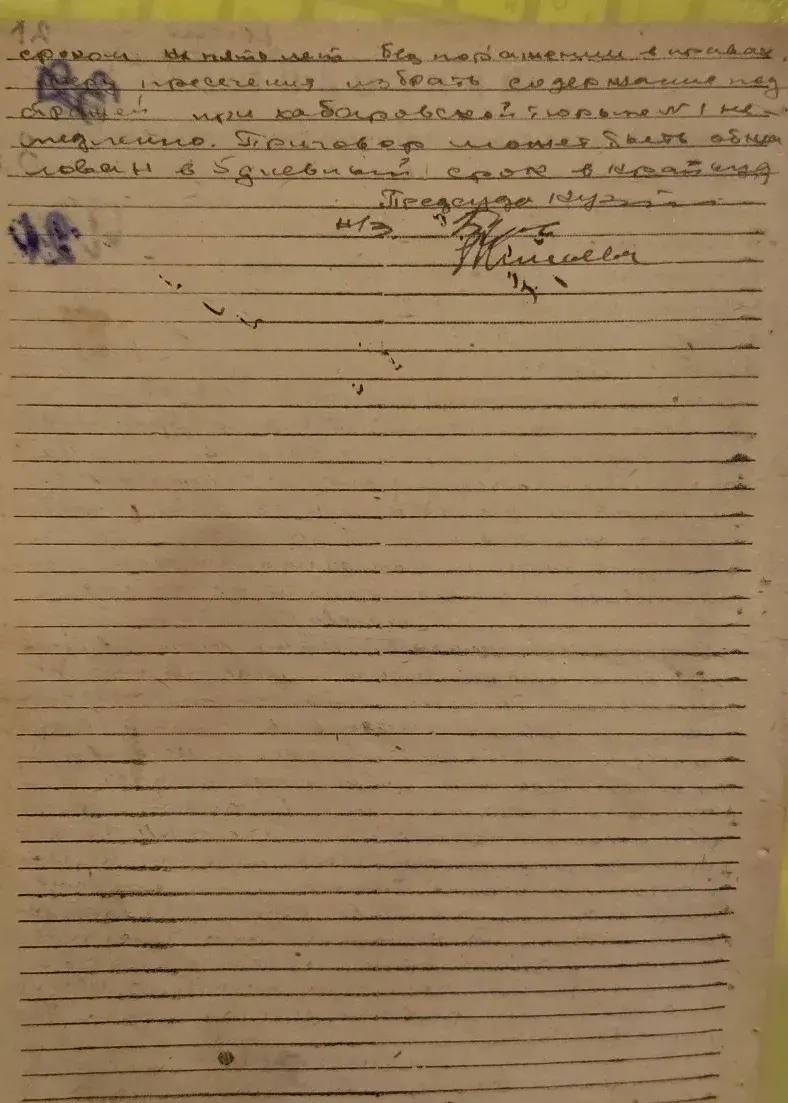 сроком на пять лет без поражении в правах.
меру пресечения избрать содержание под
стражей при хабаровской тюрьме N 1 не-
медленно. Приговор может быть обжа
лован в 5 дневный срок в крайсуд
Предсуда
н/з